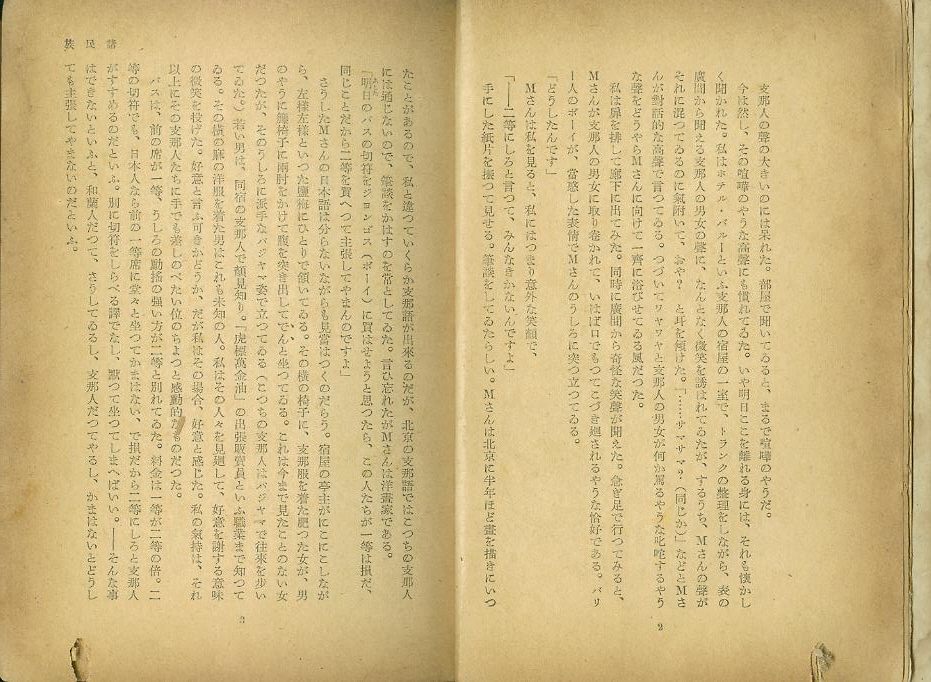 支那人の聲の大きいのには呆れた。部屋で聞いてゐると、まるで喧嘩のやうだ。
今は然し、その喧嘩のやうな高聲にも慣れてゐた。いや明日ここを離れる身には、それも懐かし
く聞かれた。私はホテル・バルーといふ支那人の宿屋の一室で、トランクの整理をしながら、表の
廣間から聞える支那人の男女の聲に、なんとなく微笑を誘はれてゐたが、するうち、Mさんの聲が
それに混つてゐるのに氣附いて、おや? と耳を傾けた。「……サマサマ?(同じか)」などとMさ
んが對話的な高聲で言つてゐる。つづいてワヤワヤと支那人の男女が何か罵るやうな叱咤するやう
な聲をどうやらMさんに向けて一齊に浴びせてゐる風だつた。
私は扉を排して廊下に出てみた。同時に廣間から奇怪な笑聲が聞えた。急ぎ足で行つてみると、
Mさんが支那人の男女に取り巻かれて、いはば口でもつてこづき廻されるやうな恰好である。バリ
ー人のボーイが、當惑した表情でMさんのうしろに突つ立つてゐる。
「どうしたんです」
Mさんは私を見ると、私にはつまり意外な笑顔で、
「――二等にしろと言つて、みんなきかないんですよ」
手にした紙片を振つて見せる。筆談をしてゐたらしい。Mさんは北京に半年ほど畫を描きにいつ
2
たことがあるので、私と違つていくらか支那語が出來るのだが、北京の支那語ではこつちの支那人
には通じないので、筆談をかはすのを常としてゐた。言ひ忘れたがMさんは洋畫家である。
「明日のバスの切符をジョンゴス(ボーイ)に買はせようと思つたら、この人たちが一等は損だ、
同じことだから二等を買へつて主張してやまんのですよ」
さうしたMさんの日本語は分らないながらも見當はつくのだらう。宿屋の亭主がにこにこしなが
ら、左様左様といつた鹽梅にひとりで頷いてゐる。その横の椅子に、支那服を着た肥つた女が、男
のやうに籐椅子に兩肘をかけて腹を突き出してでんと坐つてゐる。これは今まで見たことのない女
だつたが、そのうしろに派手なパジャマ姿で立つてゐる(こつちの支那人はパジャマで往來を歩い
てゐた。)若い男は、同宿の支那人で顔見知り。「虎標萬金油」の出張販賣員といふ職業まで知つて
ゐる。その横の麻の洋服を着た男はこれも未知の人。私はその人々を見廻して、好意を謝する意味
の微笑を投げた。好意と言ふ可きかどうか、だが私はその場合、好意と感じた。私の氣持は、それ
以上にその支那人たちに手でも差しのべたい位のちよつと感動的なものだつた。
バスは、前の席が一等、うしろの動揺の強い方が二等と別れてゐた。料金は一等が二等の倍。二
等の切符でも、日本人なら前の一等席に堂々と坐つてかまはない、で損だから二等にしろと支那人
がすすめるのだといふ。別に切符をしらべる譯でなし、默つて坐つてしまへばいい。――そんな事
はできないといふと、和蘭人だつて、さうしてゐるし、支那人だつてやるし、かまはないとどうし
ても主張してやまないのだといふ。
諸民族
3